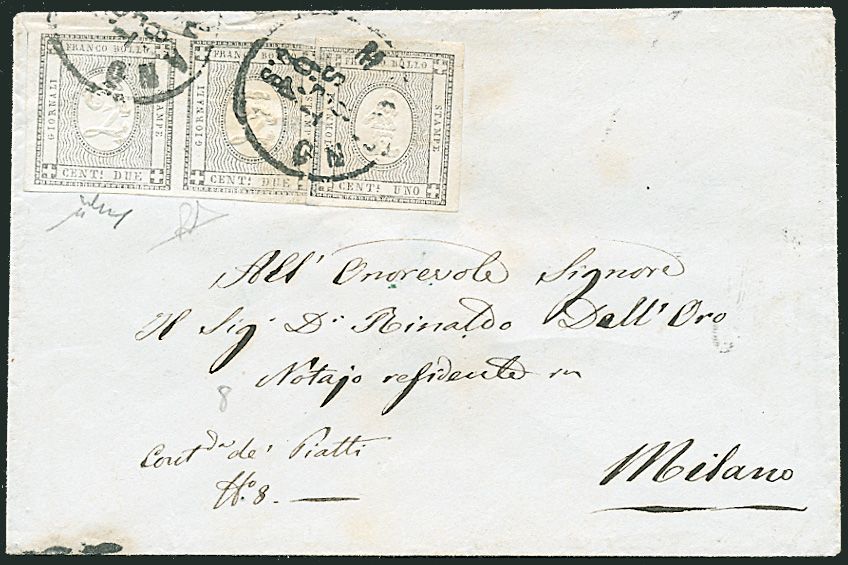 FRANCO BOLLO
GIORNALI
STAMPE
CENT! DUE
FRANCO BOLLO
GIORNALI
STAMPE
CENT! DUE
FRANCO BOLLO
GIORNALI
STAMPE
CENT! UNO
All' Onorevole Signore
Il Sig.r D.r Rinaldo Dell' Oro
Notajo residente in
Milano
Cont.da de' Piatti
N.o 8.
8